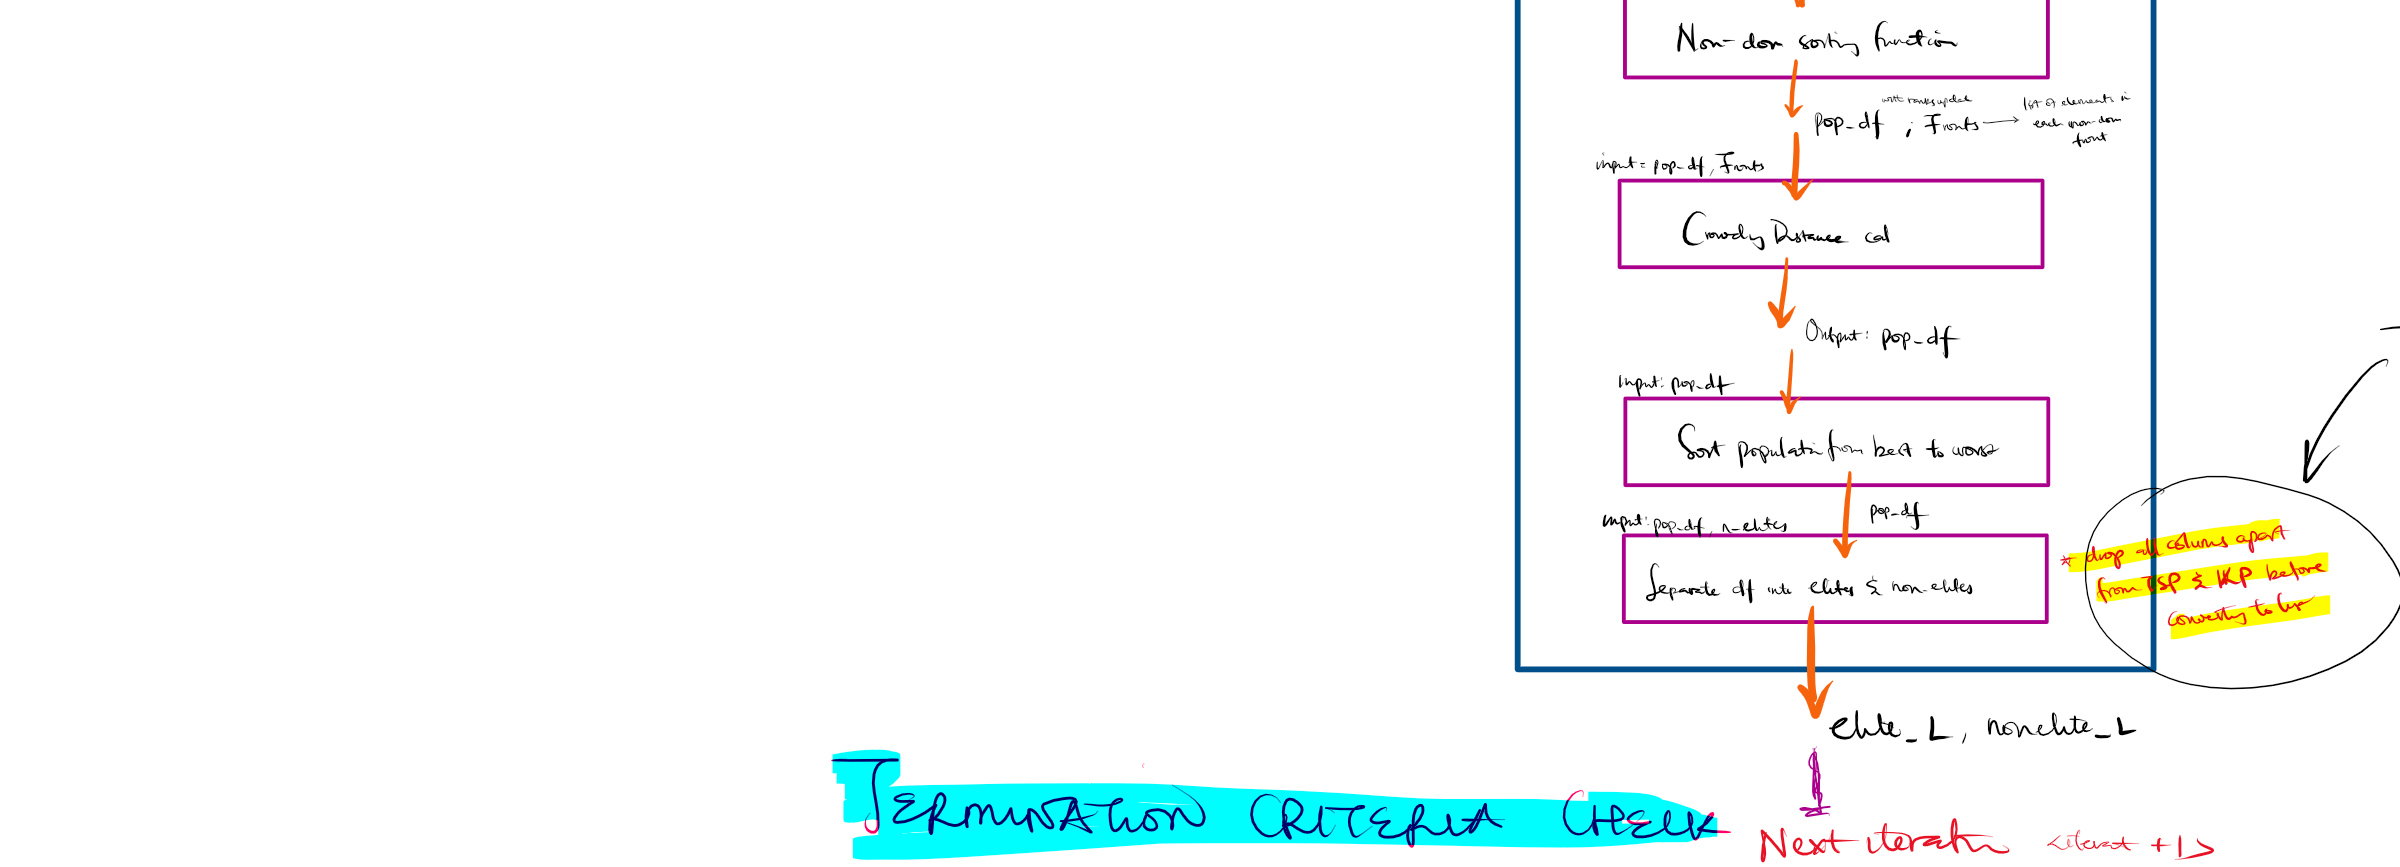 Non-dom sorting function
with ranks updated
pop_df ; Fronts → list of elements in
each non-dom
front
input = pop_df, Fronts
Crowding Distance cal
Output: pop_df
Input: pop_df
Sort population from best to worst
pop_df
Input: pop_df, n_elites
* drop all columns apart
from TSP & KP before
converting to
Separate df into elites & non-elites
elite_L, nonelite_L
TERMINATION CRITERIA CHECK
Next iteration <iterat +1>